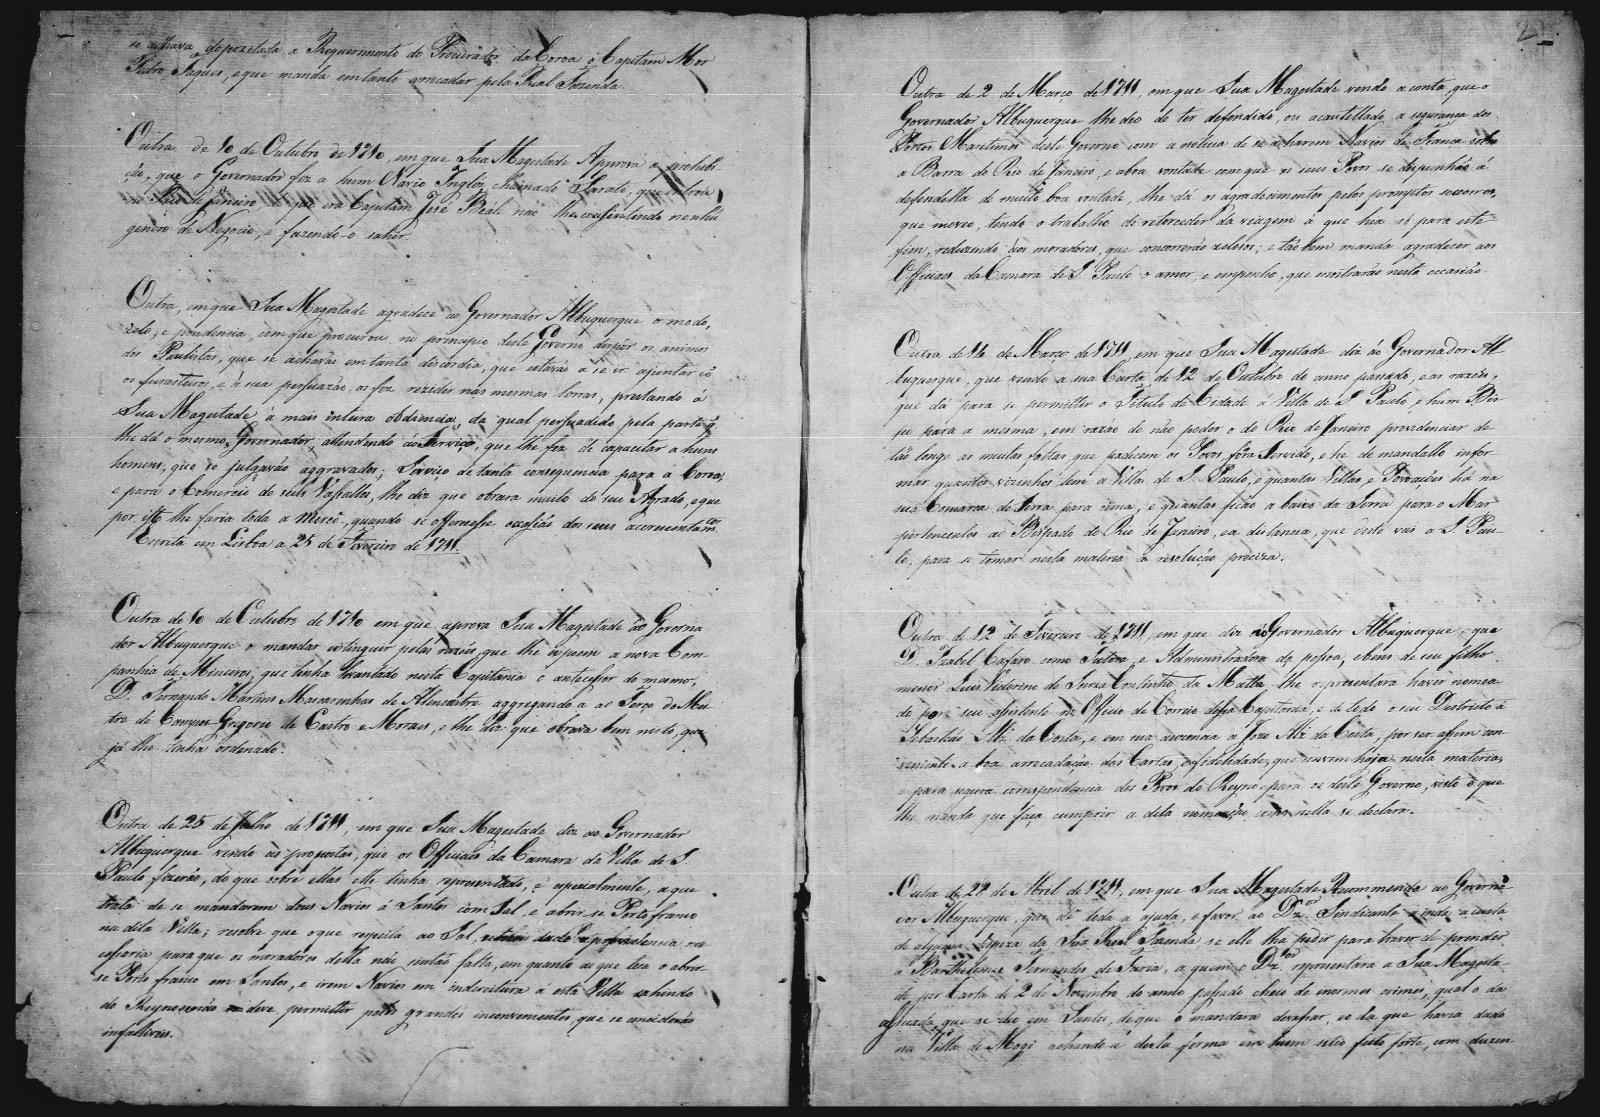 se achava depozetada a Requerimento do Procurador da Coroa o Capitam Mor
Pedro Taques, e que manda emtanto arrecadar pela Real Fazenda.
Outra de 10 de Outubro de 1710, em que Sua Magestade Approva a prohibi-
ção, que o Governador fez a hum Navio Inglez chamado Sarale, que entrou
no Rio de Janeiro de que era Capitam José Reale não lhe consentindo nenhũ
genero de Negocio, e fazendo-o sahir.
Outra, em que Sua Magestade agradece ao Governador Albuquerque o modo,
zelo, e prudencia, com que procurou no principio deste Governo dispôr os animos
dos Paulistas, que se achavão em tanta discordia, que estavão a se ir ajuntar cõ
os furasteiros, e à sua persuazão os fez rezidir nas mesmas terras, prestando á
Sua Magestade a mais inteira obdiencia, da qual persuadido pela parte q
lhe dá o mesmo Governador, attendendo ao Serviço, que lhe fez de capacitar a huns
homens, que se julgavão aggravados; Serviço de tanta consequencia para a Coroa,
e para o Comercio de seus Vassallos, lhe diz que obrara muito do seu Agrado, e que
por isso lhe faria toda a Mercê, quando se offerecesse occasião dos seus acrescentamtos
Escrita em Lisboa a 25 de Fevereiro de 1711.
Outra de 10 de Outubro de 1710 em que aprova Sua Magestade ao Governa
dor Albuquerque o mandar extinguir pelas razões, que lhe expoem a nova Com-
panhia de Mineiros, que tinha levantado nesta Capitania o antecessor do mesmo,
D. Fernando Martins Mascarenhas de Alencastre aggregando-a ao Terço do Mes-
tre de Campo Gregorio de Castro e Moraes, e lhe diz que obrava bem nisto, que
já lhe tinha ordenado.
Outra de 25 de Julho de 1711, em que Sua Magestade diz ao Governador
Albuquerque vendo as propostas, que os Officiais da Camara da Villa de S.
Paulo fizerão, do que sobre ellas elle tinha reprezentado, e especialmente, a que
trata de se mandarem dous Navios á Santos com Sal, e abrir-se Porto franco
na dita Villa; resolve que o que respeita ao Sal, estava dada a providencia ne
cessaria para que os moradores della não sintão falta, em quanto ao que toca o abrir
se Porto franco em Santos, e irem Navios em indereitura á esta Villa sahindo
do Reyno não se deve permittir pelos grandes inconvenientes, que se considerão
infalliveis.
2
Outra de 2 de Março de 1711, em que Sua Magestade vendo a conta, que o
Governador Albuquerque lhe deo de ter defendido, ou acautellado a segurança dos
Portos Maritimos deste Governo com a noticia de se acharem Navios de França sobre
a Barra do Rio de Janeiro, e a boa vontade com que os seus Povos se dispunhão á
defendella de muito boa vontade, lhe dá os agradecimentos pelos promptos socorros,
que moveo, tendo o trabalho de retroceder da viagem á que hia só para este
fim, reduzindo aos moradores, que concorrerão zelosos; e tão bem manda agradecer aos
Officiaes da Camara de S. Paulo o amor, e empenho, que mostrarão nesta occasião.
Outra de 16 de Março de 1711, em que Sua Magestade diz ao Governador Al
buquerque, que vendo a sua Carta de 12 de Outubro do anno passado, e as razões,
que dá para se permittir o Titulo de Cidade á Villa de S. Paulo, e hum Bis-
po para a mesma, em razão de não poder o do Rio de Janeiro providenciar de
tão longe as muitas faltas que padecem os Povos, fora Servido, e he de mandallo infor
mar quantos vizinhos tem a Villa de S. Paulo, e quantas Villas, e Povoações há na
sua Comarca de Serra para cima, e quantas ficão a baixo da Serra para o Mar
pertencentes ao Bispado do Rio de Janeiro, e a distancia, que deste vai a S. Pau-
lo, para se tomar nesta materia a resolução preciza.
Outra de 12 de Fevereiro de 1711, em que diz ao Governador Albuquerque, que
D. Izabel Cafaro como Tutora, e Administradora da pessoa, e bens de seu filho
menor Luis Victorino de Souza Coutinho da Matta, lhe reprezentara haver nomea
do por seu assistente no Officio de Correio dessa Capitania, e de todo o seu Destricto á
Sebastião Alz da Costa, e em sua auzencia a Joze Alz da Costa, por ser assim con
veniente a boa arrecadação das Cartas, e fidelidade, que convem haja nesta materia,
e para segura correspondencia dos Povos do Reyno para os deste Governo, visto o que
lhe manda que faça cumprir a dita nomeação como nella se declara.
Outra de 22 de Abril de 1711, em que Sua Magestade Recommenda ao Governa-
dor Albuquerque, que dê toda a ajuda, e favor ao Dzor Sindicante e inda a custa
de alguma despeza da Sua Real Fazenda se elle lha pedir para haver de prender
a Barthelomeu Fernandes de Faria, a quem o Dzor reprezentara a Sua Magesta-
de por Carta de 2 de Novembro do anno passado cheio de enormes crimes, qual o da
assuada, que se deo em Santos, de que o mandara devassar, e o da que havia dado
na Villa de Mogi achando-se desta forma em hum sitio feito forte, com duzen